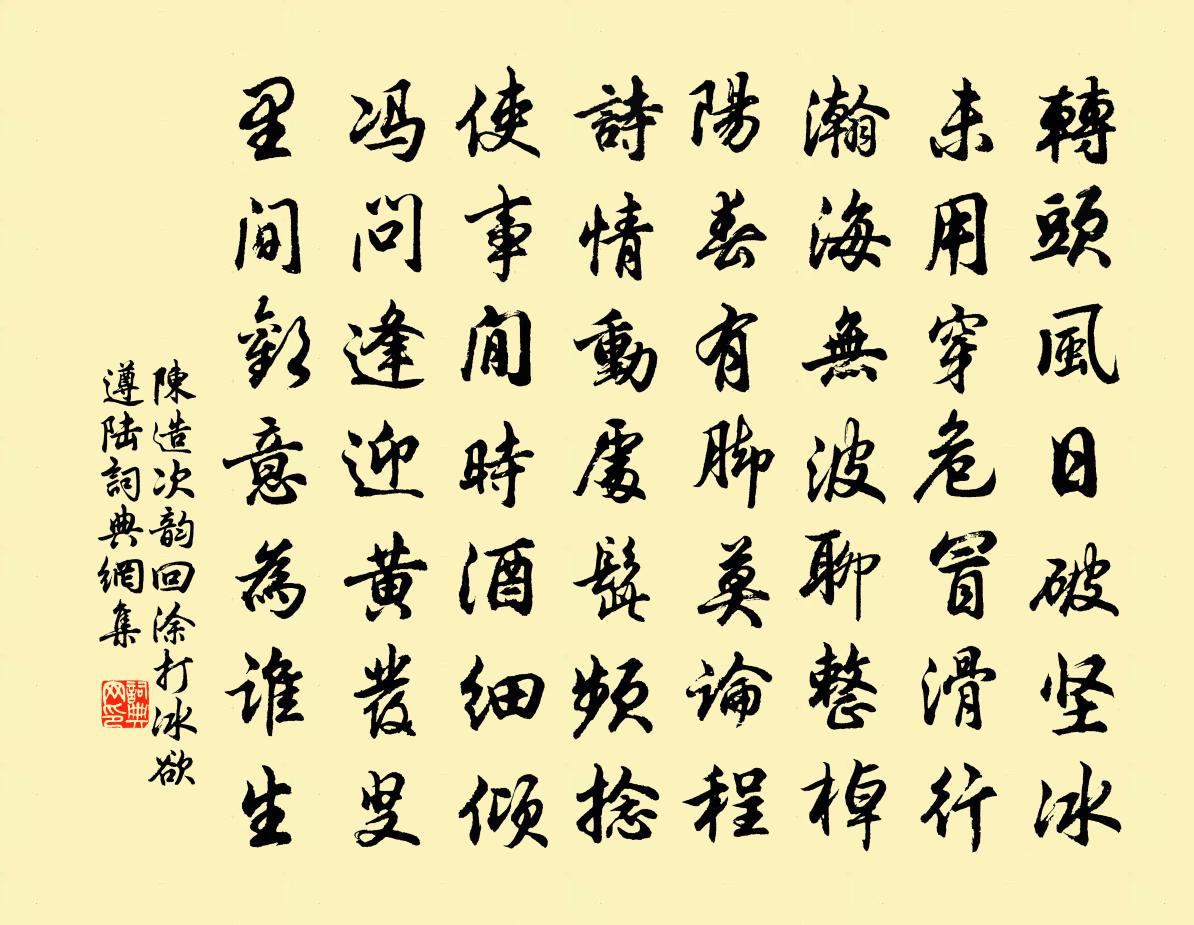 轉頭風日破坚冰
未用穿危冒滑行
瀚海無波聊整棹
陽春有脚莫論程
詩情動處髭頻捻
使事間時酒細傾
冯問逢迎黄發叟
里間歡意為誰生
陳造次韵回涂打冰欲
遵陆詞典網集
詞典
网印